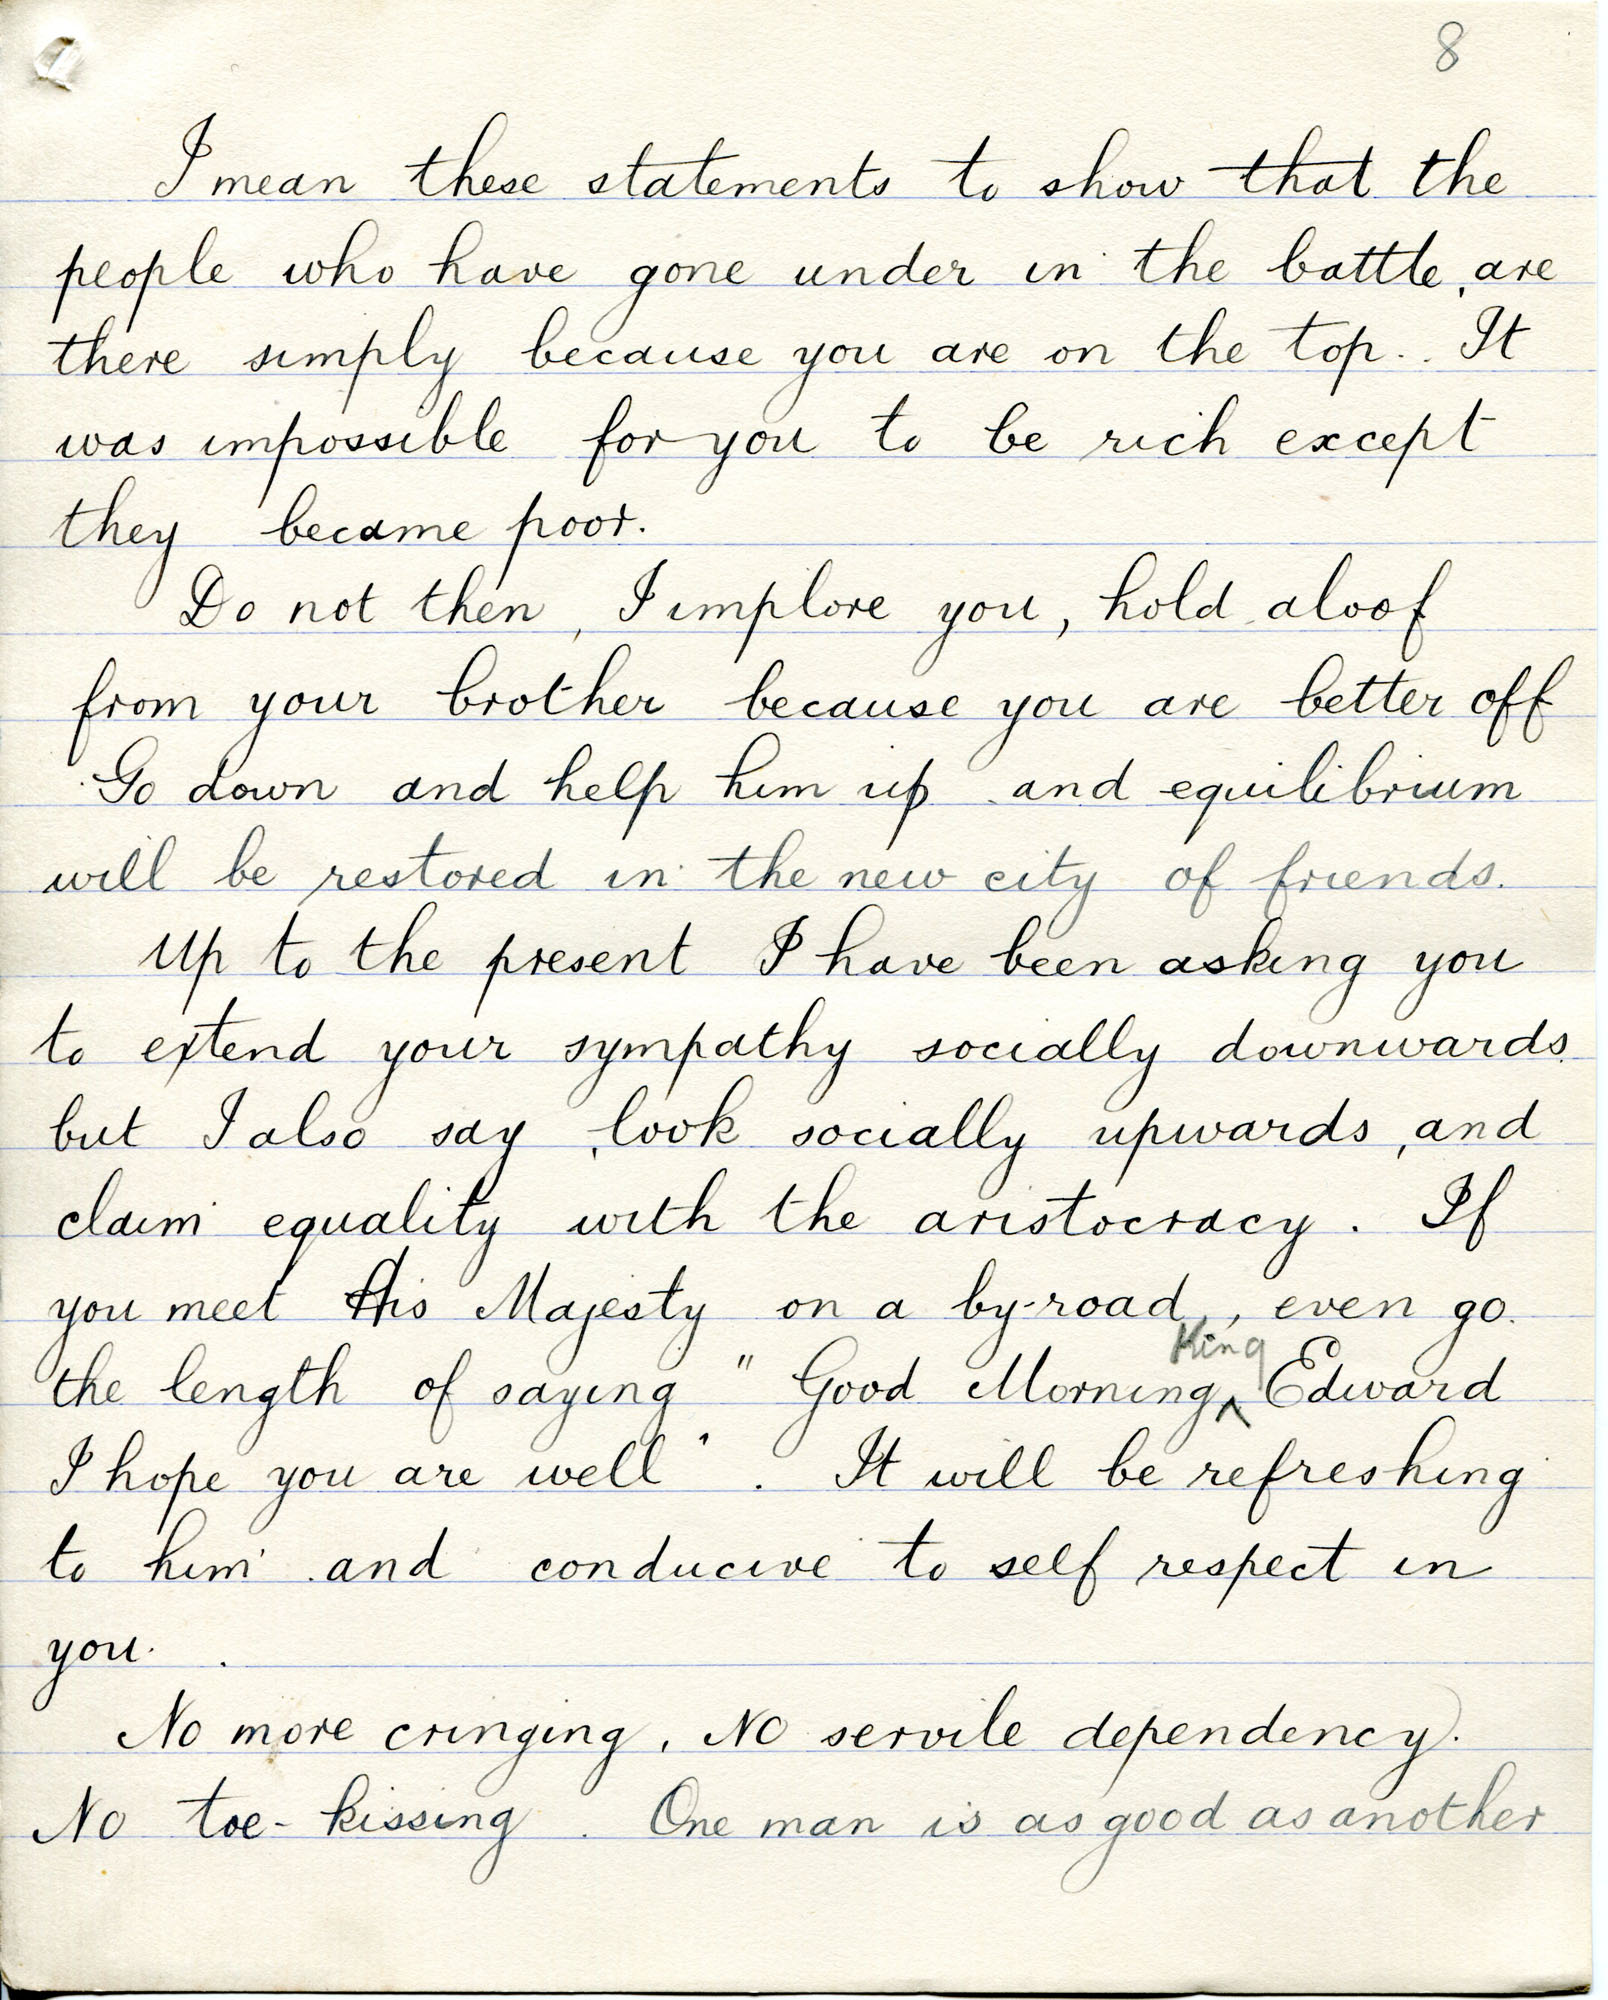 8
I mean these statements to show that the
people who have gone under in the battle, are
there simply because you are on the top.. It
was impossible for you to be rich except
they became poor.
Do not then, I implore you, hold aloof
from your brother because you are better off
Go down and help him up and equilibrium
will be restored in the new city of friends.
Up to the present I have been asking you
to extend your sympathy socially downwards.
but I also say, look socially upwards, and
claim equality with the aristocracy. If
you meet His Majesty on a by-road, even go
King
the length of saying "Good Morning ^ Edward
I hope you are well". It will be refreshing
to him and conducive to self respect in
you.
No more cringing, No servile dependency.
No toe-kissing. One man is as good as another